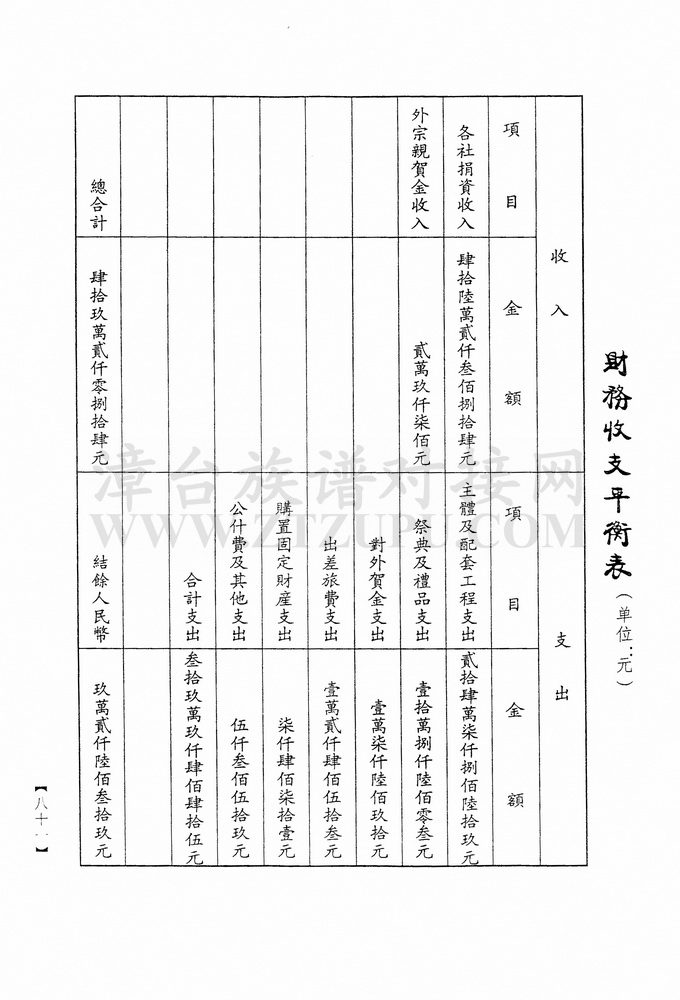 財務收支平衡表（單位：元）
收入
支出
項目
金額
項目
金額
各社捐資收入
肆拾陸萬貳仟叁佰捌拾肆元
主體及配套工程支出
貳拾肆萬柒仟捌佰陸拾玖元
外宗親賀金收入
貳萬玖仟柒佰元
祭典及禮品支出
壹拾萬捌仟陸佰零叁元
對外賀金支出
壹萬柒仟陸佰玖拾元
出差旅費支出
壹萬貳仟肆佰伍拾叁元
購置固定財産支出
柒仟肆佰柒拾壹元
公什費及其他支出
伍仟叁佰伍拾玖元
合計支出
叁拾玖萬玖仟肆佰肆拾伍元
總合計
肆拾玖萬貳仟零捌拾肆元
結餘人民幣
玖萬貳仟陸佰叁拾玖元
漳台族谱对接网
WWW.ZTZUPU.COM